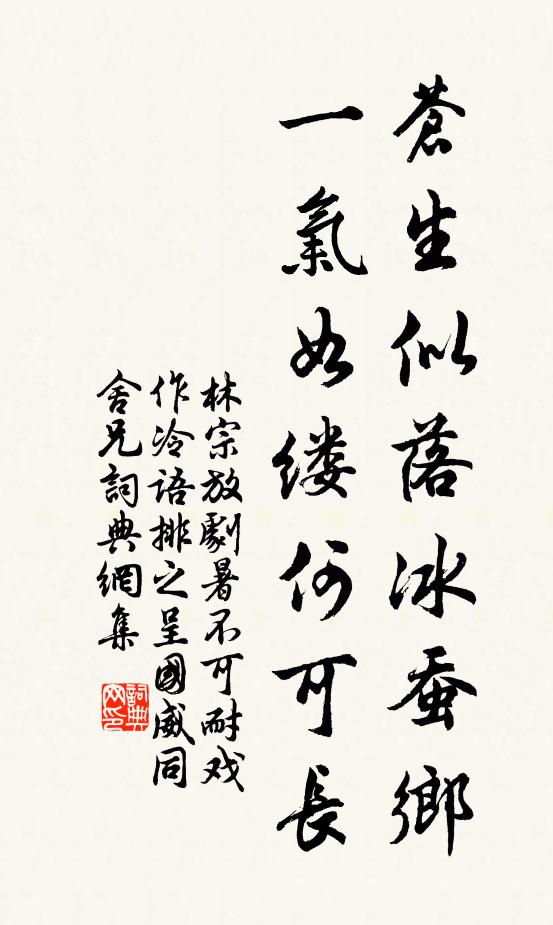 蒼生似落冰蚕鄉
一氣如缕何可長
林宗放劇暑不可耐戏
作冷语排之呈國威同
舍兄詞典網集
詞典网印